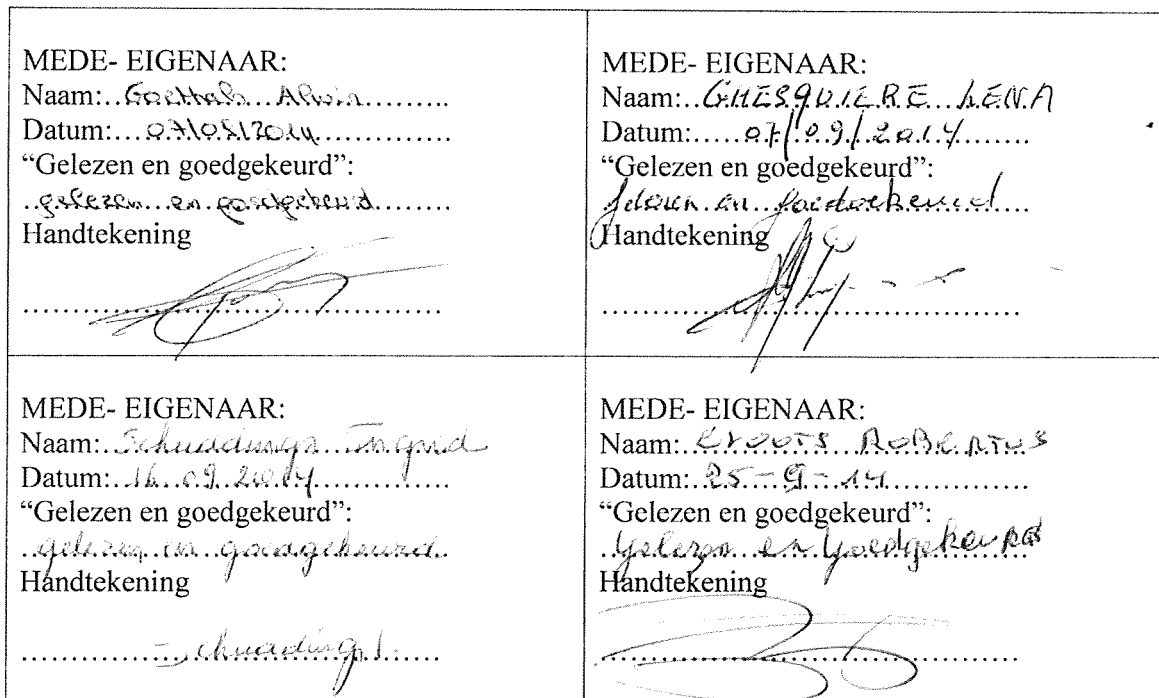 MEDE- EIGENAAR:
Naam: Goethals Alwin
Datum: 07/09/2014
"Gelezen en goedgekeurd":
gelezen en goedgekeurd
Handtekening
MEDE- EIGENAAR:
Naam: GHESQUIERE LENA
Datum: 07/09/2014
"Gelezen en goedgekeurd":
gelezen en goedgekeurd
Handtekening
MEDE- EIGENAAR:
Naam: Ingrid
Datum: 16.09.2014
"Gelezen en goedgekeurd":
gelezen en goedgekeurd
Handtekening
MEDE- EIGENAAR:
Naam: ROBERTUS
Datum: 25-9-14
"Gelezen en goedgekeurd":
Gelezen en Goedgekeurd
Handtekening